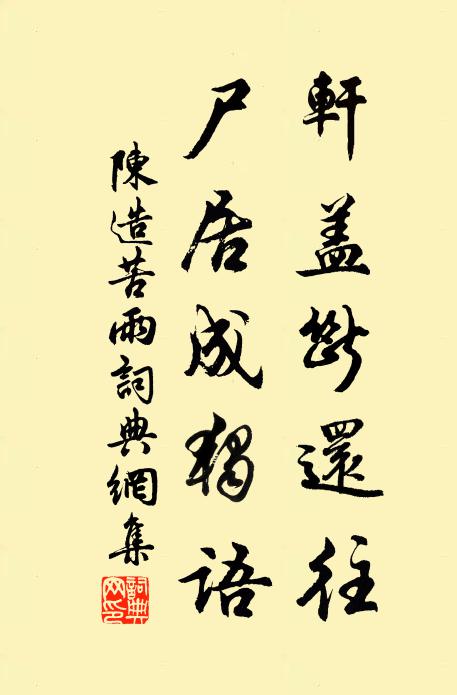 軒盖斷還往
尸居成獨語
陳造苦雨詞典網集
詞典网印